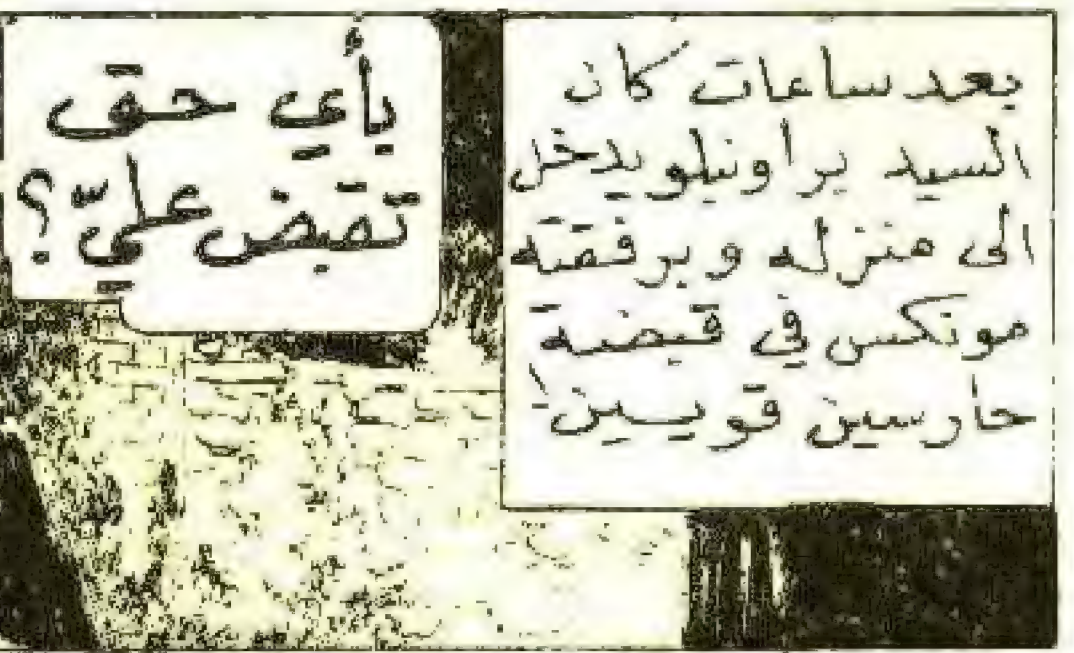 بعد ساعات كان
السيد براونلو يدخل
الى منزله وبرفقته
مونكس في قبضة
حارسين قويين!
بأي حق
تقبض عليّ؟